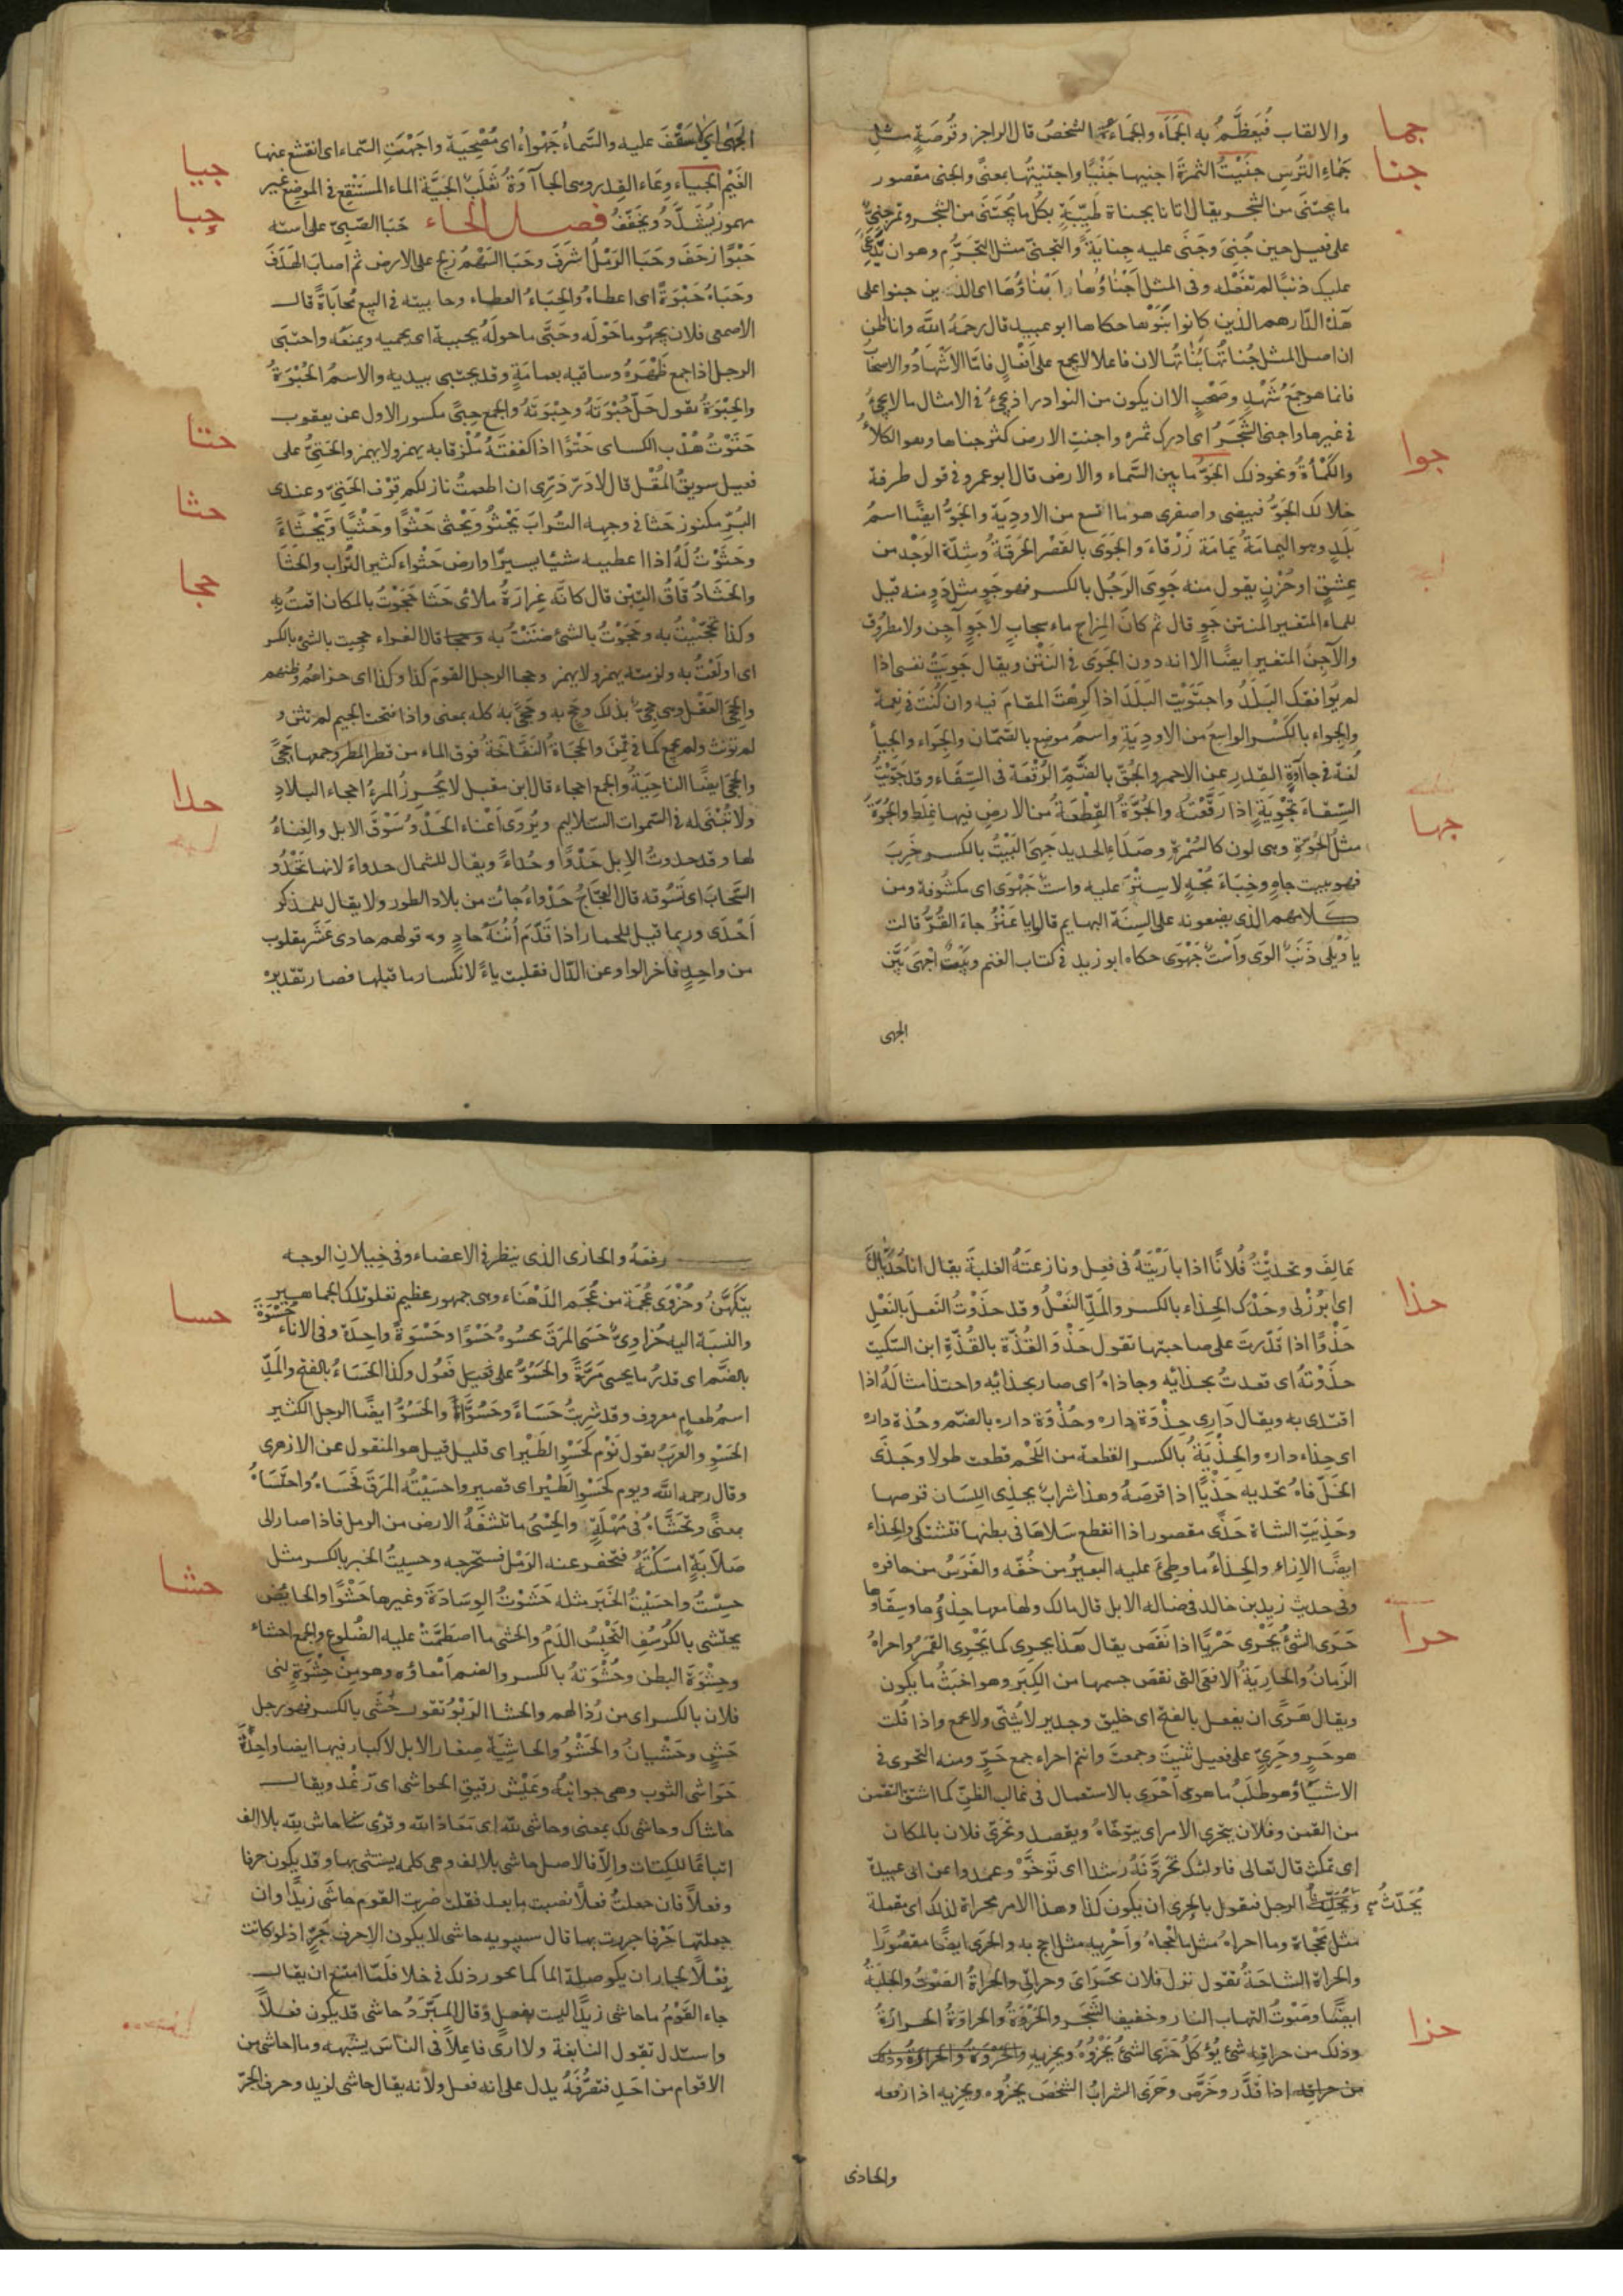 والالقاب فيعظم به الجماء والجماءة الشخص قال الراجز وقرصة مثل
جما
جماء الترس جنيت الثمرة اجنيها جنيا واجتنيتها بمعنى والجنى مقصور
جنا
ما يجتنى من الشجر يقال اتانا بجناة طيبة بكل ما يجتنى من الشجر وتمر جنى
على فعيل حين جنى وجنى عليه جناية والتجنى مثل التجرم وهو ان يدعى
عليك ذنبا لم تفعله وفى المثل اجناؤها ابناؤها اى الذين جنوا على
هذه الدار هم الذين كانوا بنوها حكاها ابو عبيد قال رحمه الله وانا اظن
ان اصل المثل جناتها بناتها لان فاعلا لا يجمع على افعال فاما الاشهاد والاصحاب
فانما هو جمع شهد وصحب الا ان يكون من النوادر اذ يجئ فى الامثال ما لا يجئ
فى غيرها واجنى الشجر اى ادرك ثمره واجنت الارض كثر جناها وهو الكلأ
والكمأة ونحو ذلك الجو ما بين السماء والارض قال ابو عمرو فى قول طرفة
جوا
خلا لك الجو فبيضى واصفرى هو ما اتسع من الاودية والجو ايضا اسم
بلد وهو اليمامة يمامة زرقاء والجوى بالقصر الحرقة وشدة الوجد من
عشق او حزن يقول منه جوى الرجل بالكسر فهو جو مثل دو ومنه قيل
للماء المتغير المنتن جو قال ثم كان المزاج ماء سحاب لا جو آجن ولا مطروق
والآجن المتغير ايضا الا انه دون الجوى فى النتن ويقال جويت نفسى اذا
لم يوافقك البلد واجتويت البلد اذا كرهت المقام فيه وان كنت فى نعمة
والجواء بالكسر الواسع من الاودية واسم موضع بالصمان والجواء والجياء
لغة فى جاآوة القدر عن الاحمر والجؤة بالضم الرقعة فى السقاء وقد جويت
السقاء تجوية اذا رقعته والجوة القطعة من الارض فيها غلظ والجوة
مثل الحوة وهى لون كالسمرة وصداء الحديد جهى البيت بالكسر خرب
جها
فهو بيت جاه وخباء مجه لا ستر عليه واست جهوى اى مكشوفة ومن
كلامهم الذى يضعونه على السنة البهايم قال ايا عنز جاء القر قالت
يا ويلى ذنب الوى واست جهوى حكاه ابو زيد فى كتاب الغنم وبيت اجهى بين
الجهى
الجهى اى لا سقف عليه والسماء جهواء اى مصحية واجهت السماء اى انقشع عنها
الغيم الجياء وعاء القدر وهى الجاآوة ثعلب الجية الماء المستنقع فى الموضع غير
جيا
مهموز يشدد ويخفف فصل الحاء حبا الصبى على استه
حبا
حبوا زحف وحبا الرمل اشرف وحبا السهم زلج على الارض ثم اصاب الهدف
وحباه حبوة اى اعطاه والحباء العطاء وحابيته فى البيع محاباة قال
الاصمعى فلان يحبو ما حوله وحبى ما حوله يحبيه اى يحميه ويمنعه واحتبى
الرجل اذا جمع ظهره وساقيه بعمامة وقد يحتبى بيديه والاسم الحبوة
والحبوة تقول حل حبوته وحبوته والجمع حبى مكسور الاول عن يعقوب
حتوت هدب الكساى حتوا اذا كففته ملزقا به يهمز ولا يهمز والحتى على
حتا
فعيل سويق المقل قال لا در درى ان اطعمت نازلكم قرف الحتى وعندى
البر مكنوز حثا فى وجهه التراب يحثو ويحثى حثوا وحثيا وتحثاء
حثا
وحثوت له اذا اعطيته شيئا يسيرا وارض حثواء كثير التراب والحثا
والحثا دقاق التبن قال كانه غرارة ملائ حثا حجوت بالمكان اقمت به
حجا
وكذا تحجيت به وحجوت بالشئ ضننت به قال الفراء حجيت بالشئ بالكسر
اى اولعت به ولزمته يهمز ولا يهمز وحجا الرجل القوم كذا وكذا اى حزاهم وظنهم
والحجى العقل وهى حجى بذلك وحج به وحجى به كله بمعنى واذا فتحت الجيم لم تثن و
لم تؤنث ولم تجمع كما فى قمن والحجاة النفاخة فوق الماء من قطر المطر وجمعها حجى
والحجى ايضا الناحية والجمع احجاء قال ابن مقبل لا يحرز المرء احجاء البلاد
ولا تبنى له فى السموات السلاليم ويروى اعناء الحدو سوق الابل والغناء
حدا
لها وقد حدوت الابل حدوا وحداء ويقال للشمال حدواء لانها تحدو
السحاب اى تسوقه قال العجاج حدواء جاءت من بلاد الطور ولا يقال للمذكر
احدى وربما قيل للحمار اذا قدم اتنه حاد وقولهم حادى عشر مقلوب
من واحد فأخر الواو عن الدال فقلبت ياء لانكسار ما قبلها فصار تقديره
عالف وتحديت فلانا اذا باريته فى فعل ونازعته الغلبة يقال انا حدياك
اى ابرز لى وحدك الحذاء بالكسر والمد النعل وقد حذوت النعل بالنعل
حذا
حذوا اذا قدرت على صاحبتها تقول حذو القذة بالقذة ابن السكيت
حذوته اى قعدت بحذائه وحاذاه اى صار بحذائه واحتذا مثاله اذا
اقتدى به ويقال دارى حذوة داره وحذوة داره بالضم وحذة داره
اى حذاء داره والحذية بالكسر القطعة من اللحم قطعت طولا وحذى
الخل فاه يحذيه حذيا اذا قرصه وهذا شراب يحذى اللسان قرصها
وحذيت الشاة حذى مقصور اذا انقطع سلاها فى بطنها فتشتكى والحذاء
ايضا الازاء والحذاء ما وطئ عليه البعير من خفه والفرس من حافره
وفى حديث زيد بن خالد فى ضالة الابل قال مالك ولها معها حذاؤها وسقاؤها
حرى الشئ يحرى حريا اذا نقص يقال هذا يحرى كما يحرى القمر واحراه
حرا
الزمان والحارية الافعى التى نقص جسمها من الكبر وهو اخبث ما يكون
ويقال هو حرى ان يفعل بالفتح اى خليق وجدير لا يثنى ولا يجمع واذا قلت
هو حر وحرى على فعيل ثنيت وجمعت وانتم احراء جمع حر ومنه التحرى فى
الاشياء وهو طلب ما هو احرى بالاستعمال فى غالب الظن كما اشتق التقمن
من القمن وفلان يتحرى الامر اى يتوخاه ويقصده وتحرى فلان بالمكان
اى تمكث قال تعالى فاولئك تحروا رشدا اى توخوا وعمدوا عن ابى عبيدة
يحدث الرجل فيقول بالحرى ان يكون كذا وهذا الامر محراة لذلك اى مقمنة
مثل محجاة وما احراه مثل ما احجاه واحر به مثل احج به والحرى ايضا مقصورا
والحراة الساحة تقول نزل فلان بحراى وحراتى والحراة الصوت والجلبة
ايضا وصوت التهاب النار وحفيف الشجر والحروة والحراوة الحرارة
وذلك من حرافة شئ يؤكل حزى الشئ يحزوه ويحزيه والحروة والحرارة وذلك
حزا
من حرافة اذا قدر وخرص وحزى السراب الشخص يحزوه ويحزيه اذا رفعه
والحاذى
رفعه والحازى الذى ينظر فى الاعضاء وفى خيلان الوجه
يتكهن وحزوى عجمة من عجم الدهناء وهى جمهور عظيم تعلو تلك الجماهير
والنسبة اليه حزاوى حسى المرق يحسوه حسوا وحسوة واحدة وفى الاناء حسوة
حسا
بالضم اى قدر ما يحسى مرة والحسو على فعيل فعول وكذا الحساء بالفتح والمد
اسم طعام معروف وقد شربت حساء وحسوا والحسو ايضا الرجل الكثير
الحسو والعرب تقول نوم كحسو الطير اى قليل قيل هو المنقول عن الازهرى
وقال رحمه الله ويوم كحسو الطير اى قصير واحسيته المرق فحساه واحتساه
بمعنى وتحساه فى مهلة والحسى ما تنشفه الارض من الرمل فاذا صار الى
صلابة امسكته فتحفر عنه الرمل فتستخرجه وحسيت الخبر بالكسر مثل
حسست واحسيت الخبر مثله حشوت الوسادة وغيرها حشوا والحايض
حشا
تحتشى بالكرسف لتحبس الدم والحشى ما اضطمت عليه الضلوع والجمع احشاء
وحشوة البطن وحشوته بالكسر والضم امعاؤه وهو من حشوة بنى
فلان بالكسر اى من رذالهم والحشا الربو تقول حشى بالكسر فهو رجل
حش وحشيان والحشو والحاشية صغار الابل لا كبار فيها ايضا واحدة
حواشى الثوب وهى جوانبه وعيش رقيق الحواشى اى رغد ويقال
حاشاك وحاشى لك بمعنى وحاشى لله اى معاذ الله وقرئ حاش لله بلا الف
اتباعا للكتاب والا فالاصل حاشى بالالف وهى كلمة يستثنى بها وقد يكون حرفا
وفعلا فان جعلت فعلا نصبت ما بعد فقلت ضربت القوم حاشى زيدا وان
جعلتها حرفا جررت بها قال سيبويه حاشى لا يكون الا حرف جر اذ لو كانت
فعلا لجاز ان يكون صلة لما كما يجوز ذلك فى خلا فلما امتنع ان يقال
جاء القوم ما حاشى زيدا ليست بفعل وقال المبرد حاشى قد يكون فعلا
واستدل بقول النابغة ولا ارى فاعلا فى الناس يشبهه وما احاشى من
الاقوام من احد فتصرفه يدل على انه فعل ولانه يقال حاشى لزيد وحرف الجر